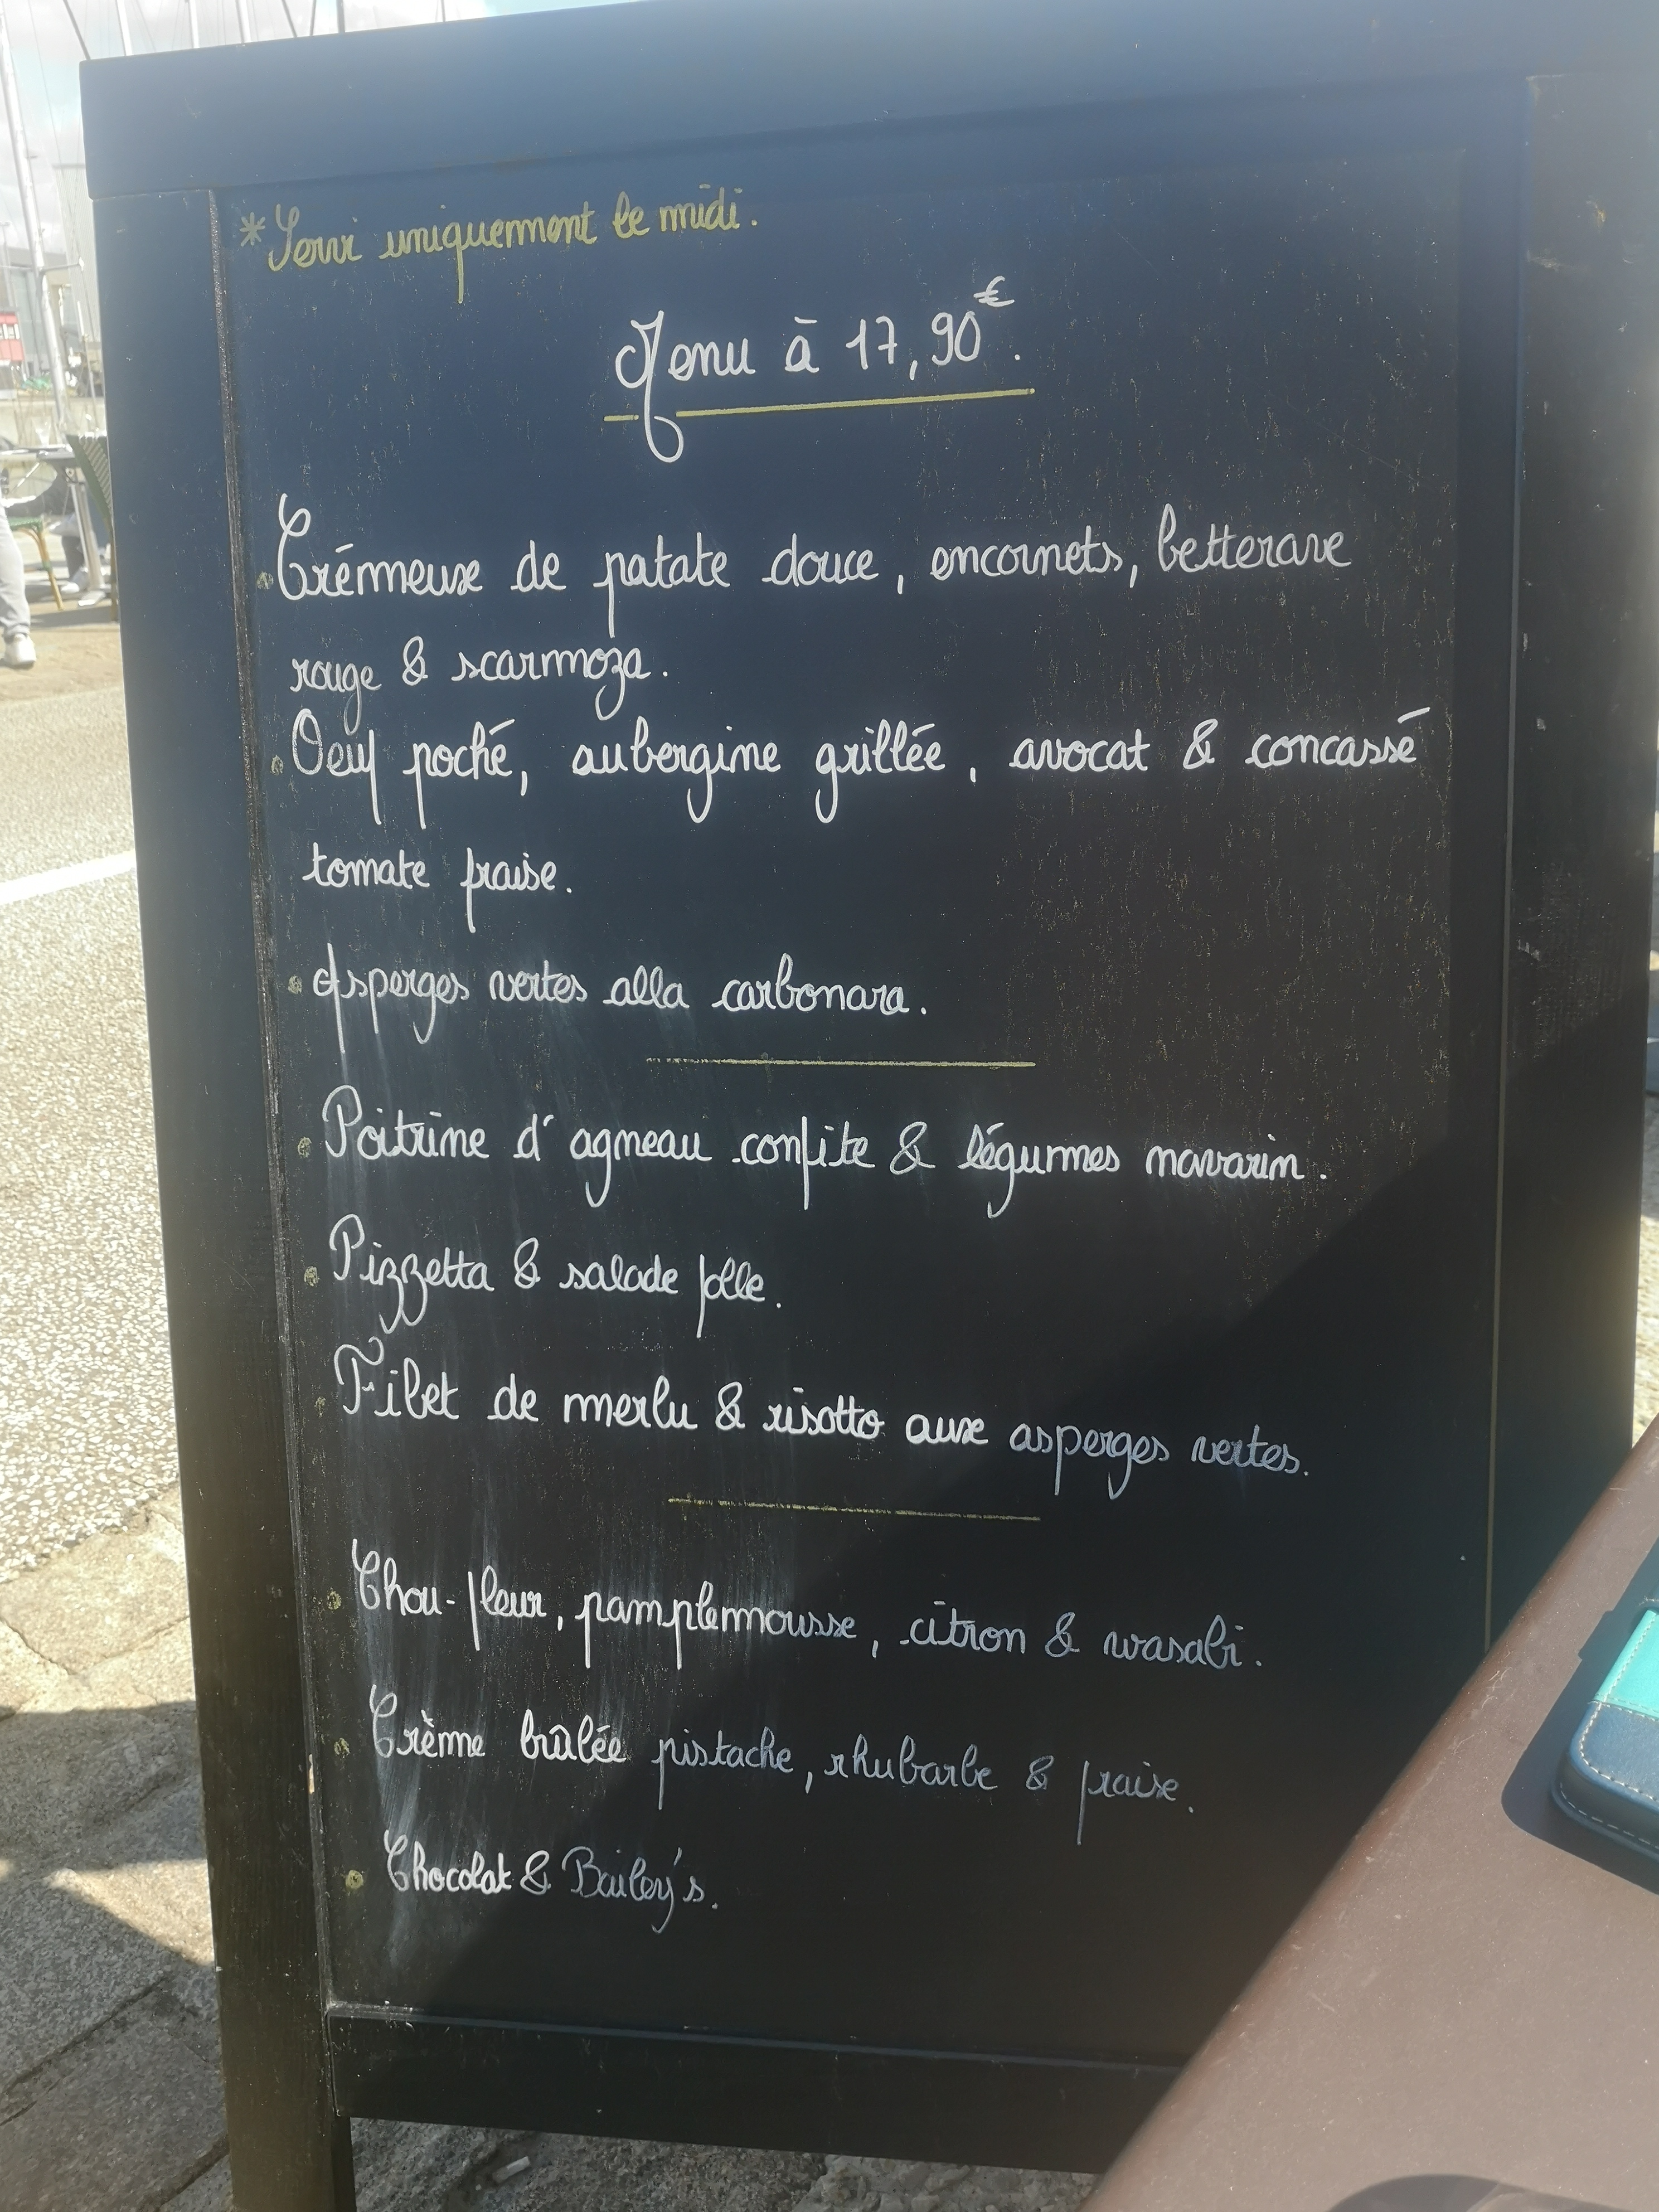 *Servi uniquement le midi.
Menu à 17,90€.
Crémeux de patate douce, encornets, betterave
rouge & scarmoza.
Oeuf poché, aubergine grillée, avocat & concassé
tomate fraise.
Asperges vertes alla carbonara.
Poitrine d'agneau confite & légumes navarin.
Pizzetta & salade folle.
Filet de merlu & risotto aux asperges vertes.
Chou-fleur, pamplemousse, citron & wasabi.
Crème brûlée pistache, rhubarbe & fraise.
Chocolat & Bailey's.